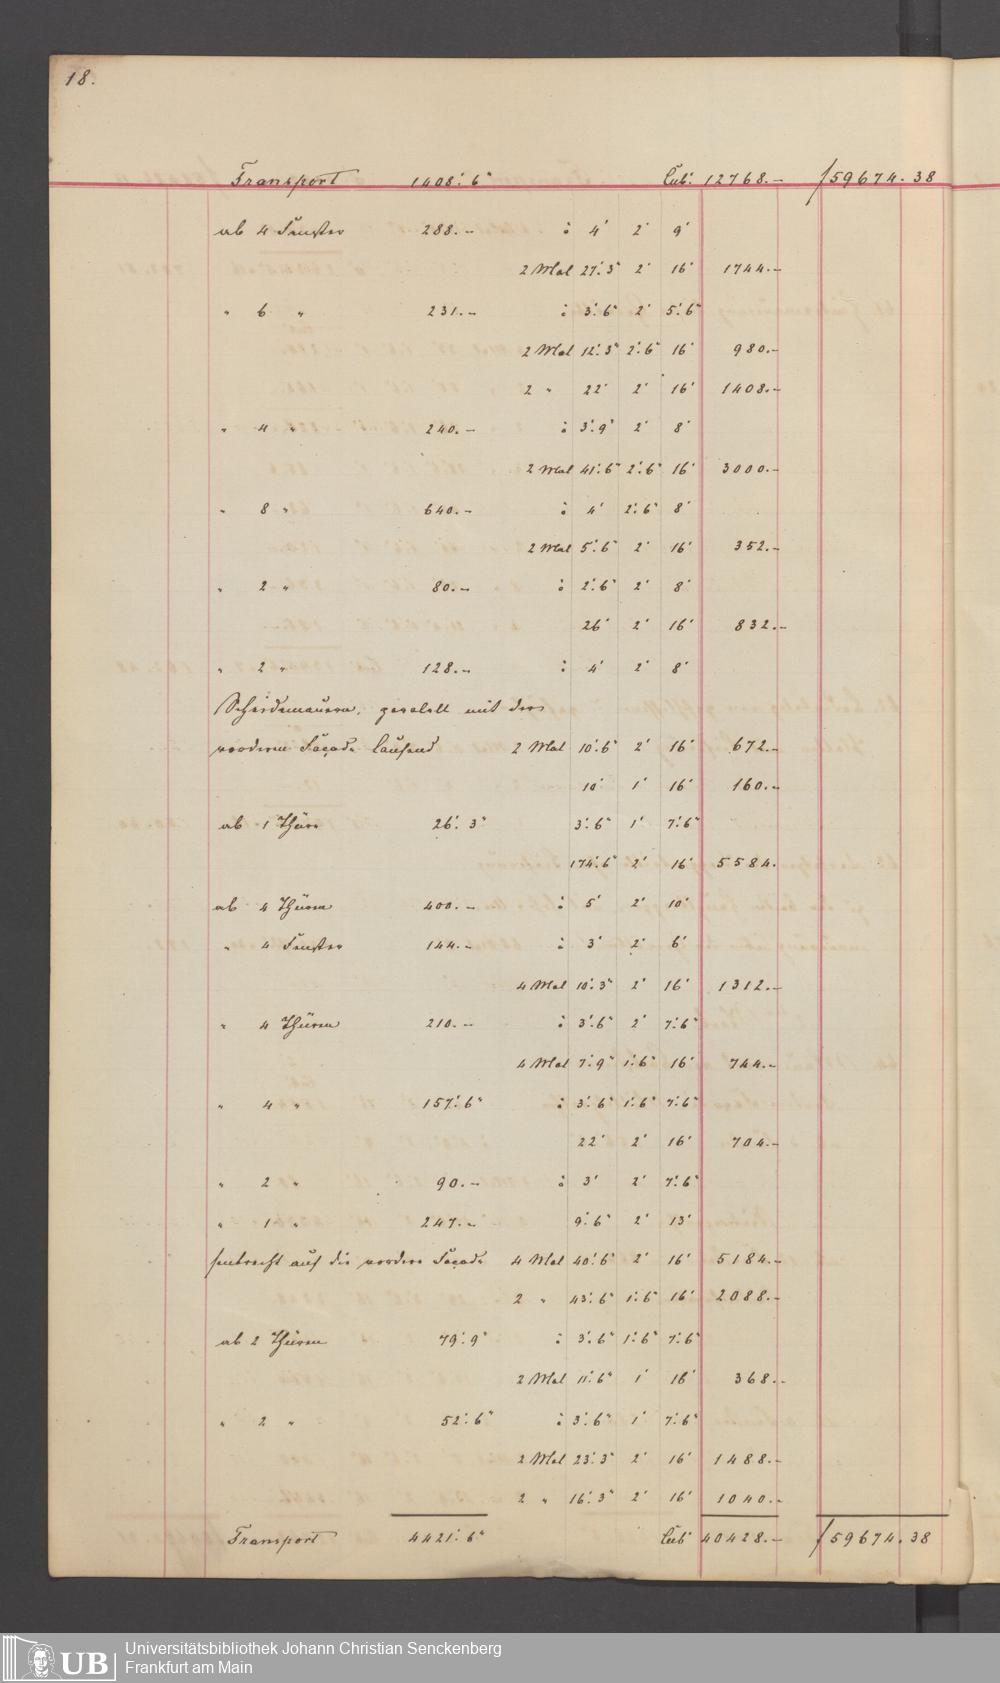 18.
Transport 1408'.6" Cub' 12768.- f 59674.38
ab 4 Fenster 288.- : 4' 2' 9'
2 Mal 27'.3" 2' 16' 1744.-
" 6 " 231.- : 3'.6" 2' 5'.6"
2 Mal 12'.3" 2'.6" 16' 980.-
2 " 22' 2' 16' 1408.-
" 4 " 240.- : 3'.9" 2' 8'
2 Mal 41'.6" 2'.6" 16' 3000.-
" 8 " 640.- : 4' 2'.6" 8'
2 Mal 5'.6" 2' 16' 352.-
" 2 " 80.- : 2'.6" 2' 8'
26' 2' 16' 832.-
" 2 " 128.- : 4' 2' 8'
Scheidemauern, paralell mit der
vorderen Façade laufend 2 Mal 10'.6" 2' 16' 672.-
10' 1' 16' 160.-
ab 1 Thüre 26'.3" 3'.6" 1' 7'.6"
174'.6" 2' 16' 5584.
ab 4 Thüren 400.- : 5' 2' 10'
" 4 Fenster 144.- : 3' 2' 6'
4 Mal 10'.3" 2' 16' 1312.-
" 4 Thüren 210.- : 3'.6" 2' 7'.6"
4 Mal 7'.9" 1'.6" 16' 744.-
" 4 " 157'.6" : 3'.6" 1'.6" 7'.6"
22' 2' 16' 704.-
" 2 " 90.- : 3' 2' 7'.6"
" 1 " 247.- 9'.6" 2' 13'
senkrecht auf die vordere Façade 4 Mal 40'.6" 2' 16' 5184.-
2 " 43'.6" 1'.6" 16' 2088.-
ab 2 Thüren 79'.9" : 3'.6" 1'.6" 7'.6"
2 Mal 11'.6" 1' 16' 368.-
" 2 " 52'.6" : 3'.6" 1' 7'.6"
2 Mal 23'.3" 2' 16' 1488.-
2 " 16'.3" 2' 16' 1040.-
Transport 4421'.6" Cub' 40428.- f 59674.38
UB Universitätsbibliothek Johann Christian Senckenberg
Frankfurt am Main